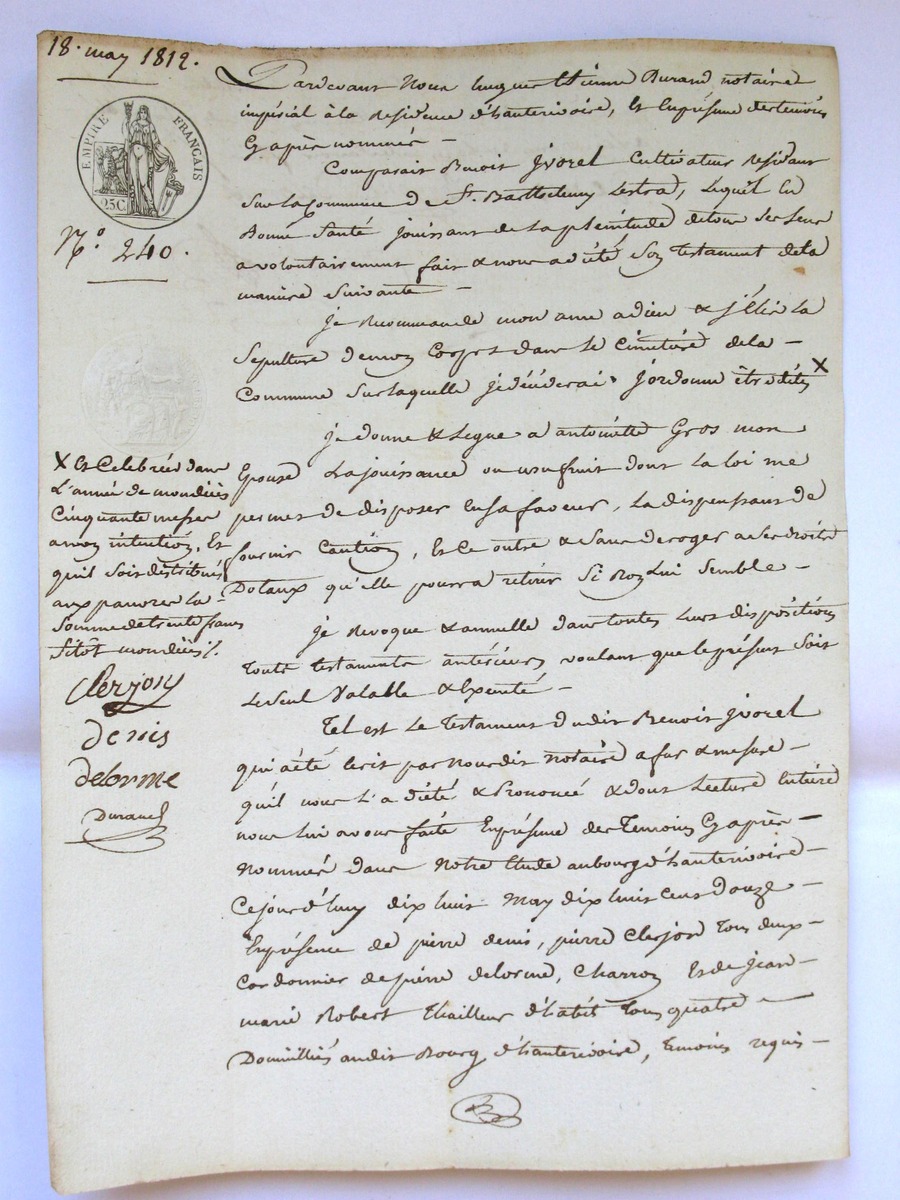 18. may 1812.
EMPIRE FRANÇAIS
25C.
N.° 240.
Pardevant Nous hugues Etienne Durand notaire
impérial à la Residence d'hauterivoire, Et En présence des temoins
Cy après nommés —
Comparait Benoit Jvorel Cultivateur Residant
Sur la Commune de St. Barthelemy Lestra, Lequel En
Bonne Santé jouissant de la plenitude de tous ses Sens
a volontairement fait & nous a dicté Son Testament de la
maniere Suivante —
Je Recommande mon ame a dieu & j'Elis la
Sepulture de mon Corps dans le Cimetiere de la —
Commune Sur laquelle je décéderai. J'ordonne être dites X
je donne & Legue a antoinette Gros mon
Epouse La jouissance ou usufruit dont La loi me
permet de disposer En sa faveur, La dispensant de
fournir Caution, Et Ce outre & Sans deroger a ses droits
Dotaux qu'elle pourra retirer Si Bon Lui Semble —
Je Revoque & annulle dans toutes Leurs dispositions
Touts testaments antérieurs voulant que le présent Soit
Le Seul Valable & Executé —
Tel est Le Testament dudit Benoit Jvorel
qui a été Ecrit par Nous dit Notaire a fur & mesure —
qu'il nous L'a dicté & Prononcé & dont Lecture Entiere
nous lui avons faite En présence des Temoins Cy après —
Nommés dans Notre Etude au bourg d'hauterivoire —
Ce jourd'huy dix huit May dix huit Cent Douze —
En présence de pierre denis, pierre Clerjon Tous deux —
Cordonnier de pierre delorme, Charron Et de Jean —
marie Robert Thailleur d'habit Tous quatre —
Domiciliés audit Bourg d'hauterivoire, Temoins requis —
X Et Celebrées dans
L'année de mon décès
Cinquante messes
a mon intention, Et
qu'il Soit distribué
aux pauvres La —
Somme de trente francs
Sitôt mon décès ./.
Clerjon
denis
delorme
Durand